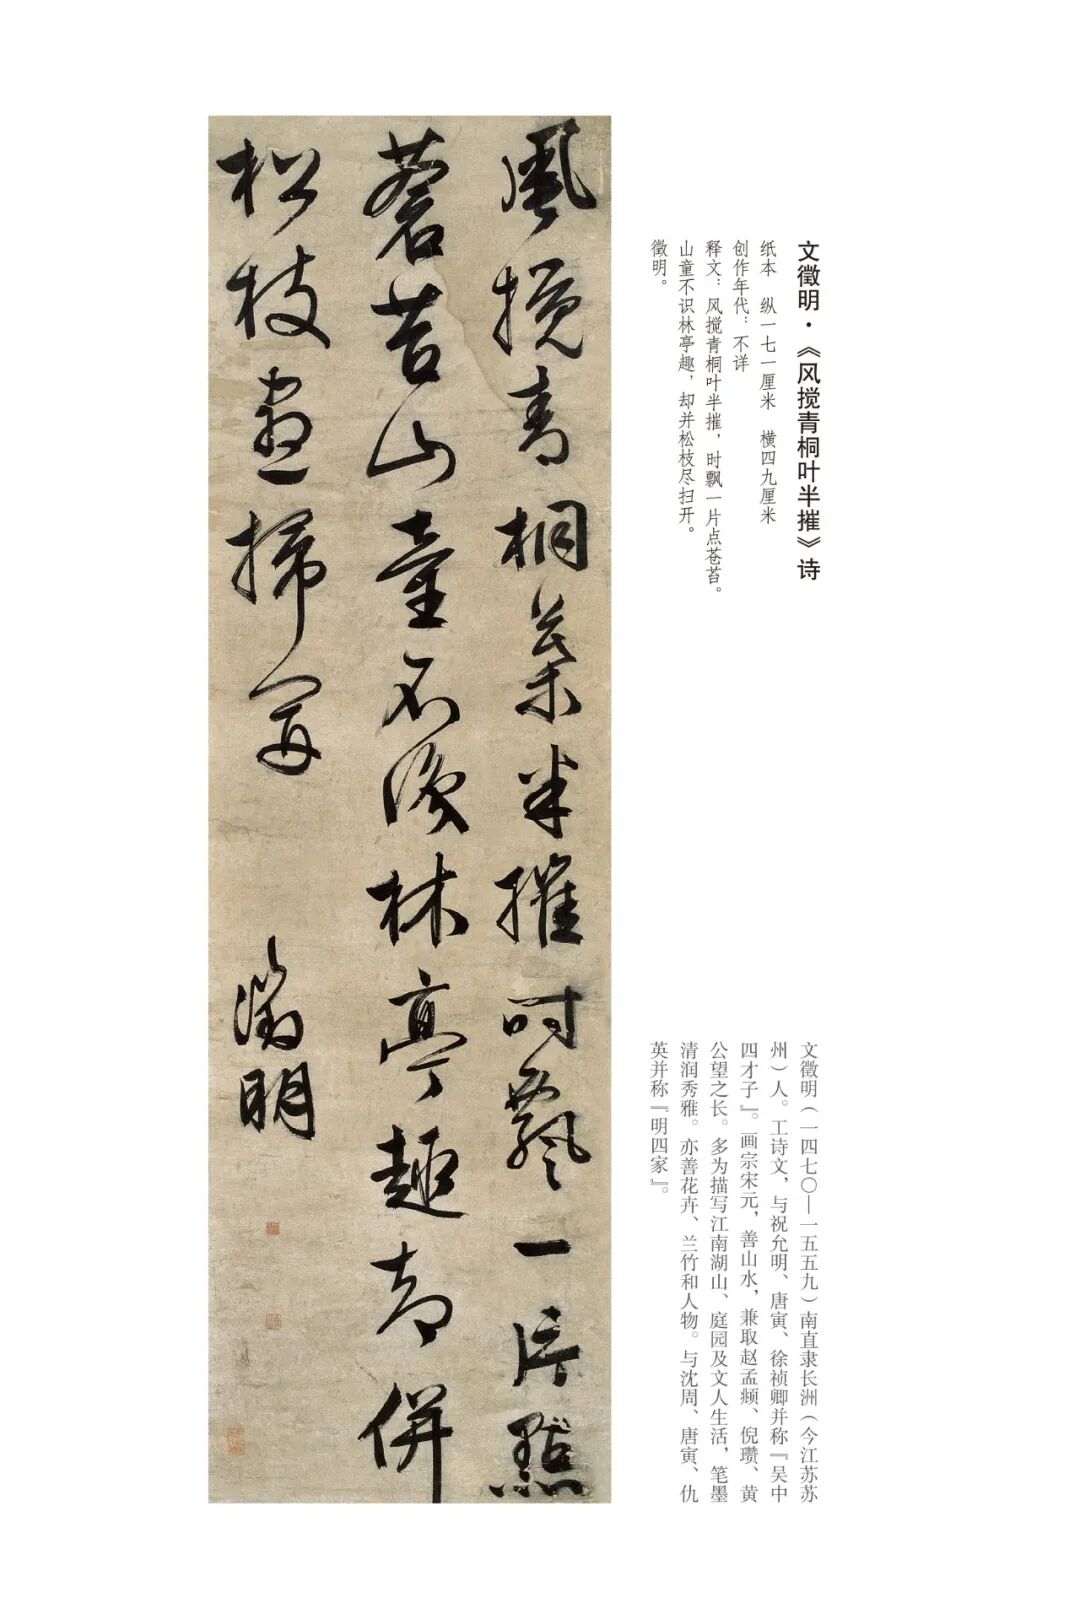 风搅青桐叶半摧时飘一片點
蒼苔山童不識林亭趣却併
松枝盡掃開
徵明
文徵明·《风搅青桐叶半摧》诗
纸本　纵一七一厘米　横四九厘米
创作年代：不详
释文：风搅青桐叶半摧，时飘一片点苍苔。
山童不识林亭趣，却并松枝尽扫开。
徵明。
文徵明（一四七〇—一五五九）南直隶长洲（今江苏苏
州）人。工诗文，与祝允明、唐寅、徐祯卿并称『吴中
四才子』。画宗宋元，善山水，兼取赵孟頫、倪瓒、黄
公望之长。多为描写江南湖山、庭园及文人生活，笔墨
清润秀雅。亦善花卉、兰竹和人物。与沈周、唐寅、仇
英并称『明四家』。